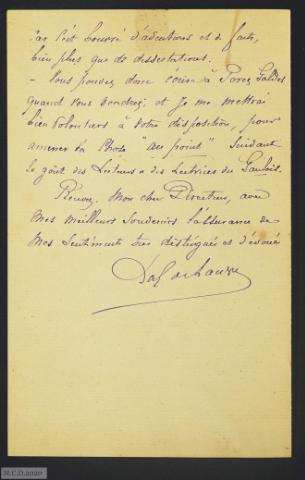 car c'est bourré d'aventures et de faits,
bien plus que de dissertations.
- Vous pouvez donc écrire à Perez Galdos
quand vous voudrez, et je me mettrai
bien volontiers à votre disposition, pour
amener la chose "au point" suivant
le goût des Lecteurs & des Lectrices du Gaulois.
Recevez, Mon cher Directeur, avec
Mes Meilleurs Souvenirs l'assurance de
Mes Sentiments très distingués et dévoués
M.C.D.